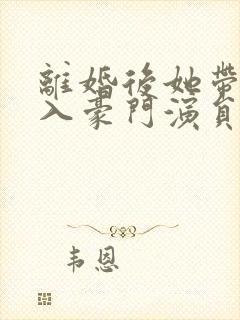 離婚後她帶
入豪門演員
韦恩